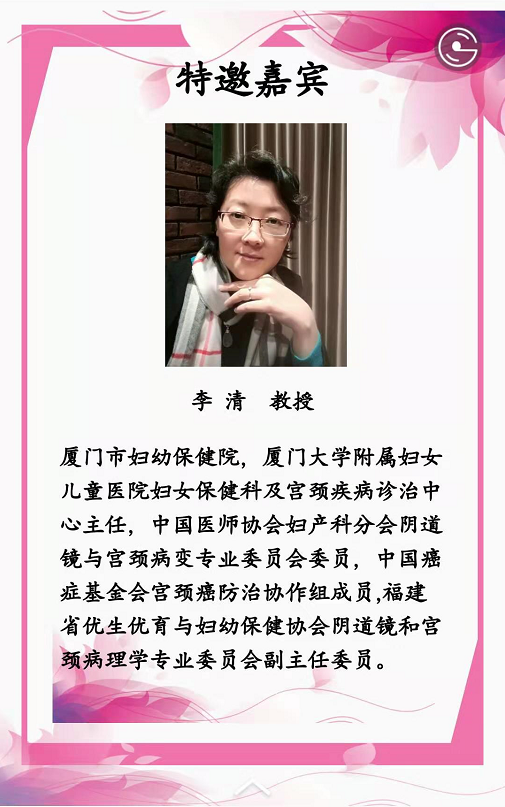 特邀嘉宾
李 清 教授
厦门市妇幼保健院，厦门大学附属妇女
儿童医院妇女保健科及宫颈疾病诊治中
心主任，中国医师协会妇产科分会阴道
镜与宫颈病变专业委员会委员，中国癌
症基金会宫颈癌防治协作组成员,福建
省优生优育与妇幼保健协会阴道镜和宫
颈病理学专业委员会副主任委员。